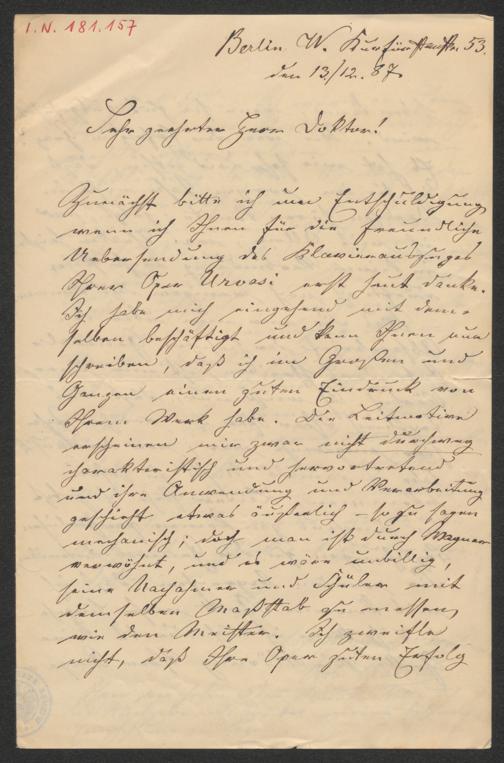 I.N. 181.157
Berlin W. Kurfürstenstr. 53.
den 13./12. 87.
Sehr geehrter Herr Doktor!
Zunächst bitte ich um Entschuldigung
wenn ich Ihnen für die freundliche
Uebersendung des Klavierauszuges
Ihrer Oper Urvasi erst heut danke.
Ich habe mich eingehend mit dem-
selben beschäftigt und kann Ihnen nur
schreiben, daß ich im Großen und
Ganzen einen guten Eindruck von
Ihrem Werk habe. Die Leitmotive
erscheinen mir zwar nicht durchweg
charakteristisch und hervortretend
und ihre Anwendung und Verarbeitung
geschieht etwas äußerlich – so zu sagen
mechanisch; doch man ist durch Wagner
verwöhnt, und es wäre unbillig,
seine Nachahmer und Schüler mit
demselben Maßstab zu messen,
wie den Meister. Ich zweifle
nicht, daß Ihre Oper guten Erfolg